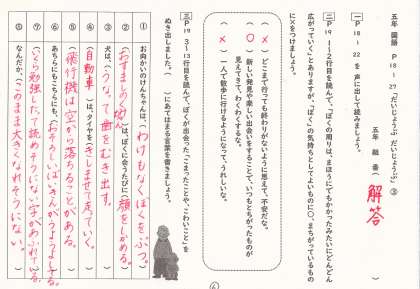 五年 国語 P18~27「だいじょうぶ だいじょうぶ」③
五年 組 番( )
解答
一 P18~22 を 声に出して読みましょう。
二 P19 1~2行目を読んで、「ぼくの周りは、まほうにでもかかったみたいにどんどん
広がっていく」とありますが、「ぼく」の気持ちとしてよいものに○、まちがっているもの
に×をつけましょう。
( × ) どこまで行っても終わりがないように思えて、不安だな。
( ○ ) 新しい発見や楽しい出会いをすることで、いつもとちがったものが
思えてきて、わくわくするな。
( × ) 一人で散歩に行けるようになって、うれしいな。
三 P19 3~13行目を読んで、「ぼく」が出会った「こまったことや、こわいこと」を
ぬき出しました。( )にあてはまる言葉を書きましょう。
① お向かいのけんちゃんは、( わけもなくぼくをぶつ。 )
② ( おすましのくみ )は、ぼくに会うたびに( 顔をしかめる。 )
③ 犬は、( うなって歯をむき出す。 )
④ ( 自動車 )は、タイヤを( きしませて走っていく。 )
⑤ ( 飛行機は空から落ちることがある。 )
⑥ あちらにもこちらにも、( おそろしいばいきんがうようよしている。 )
⑦ ( いくら勉強したって読めそうにない字があふれている。 )
⑧ なんだか、( このまま大きくなれそうにない。 )